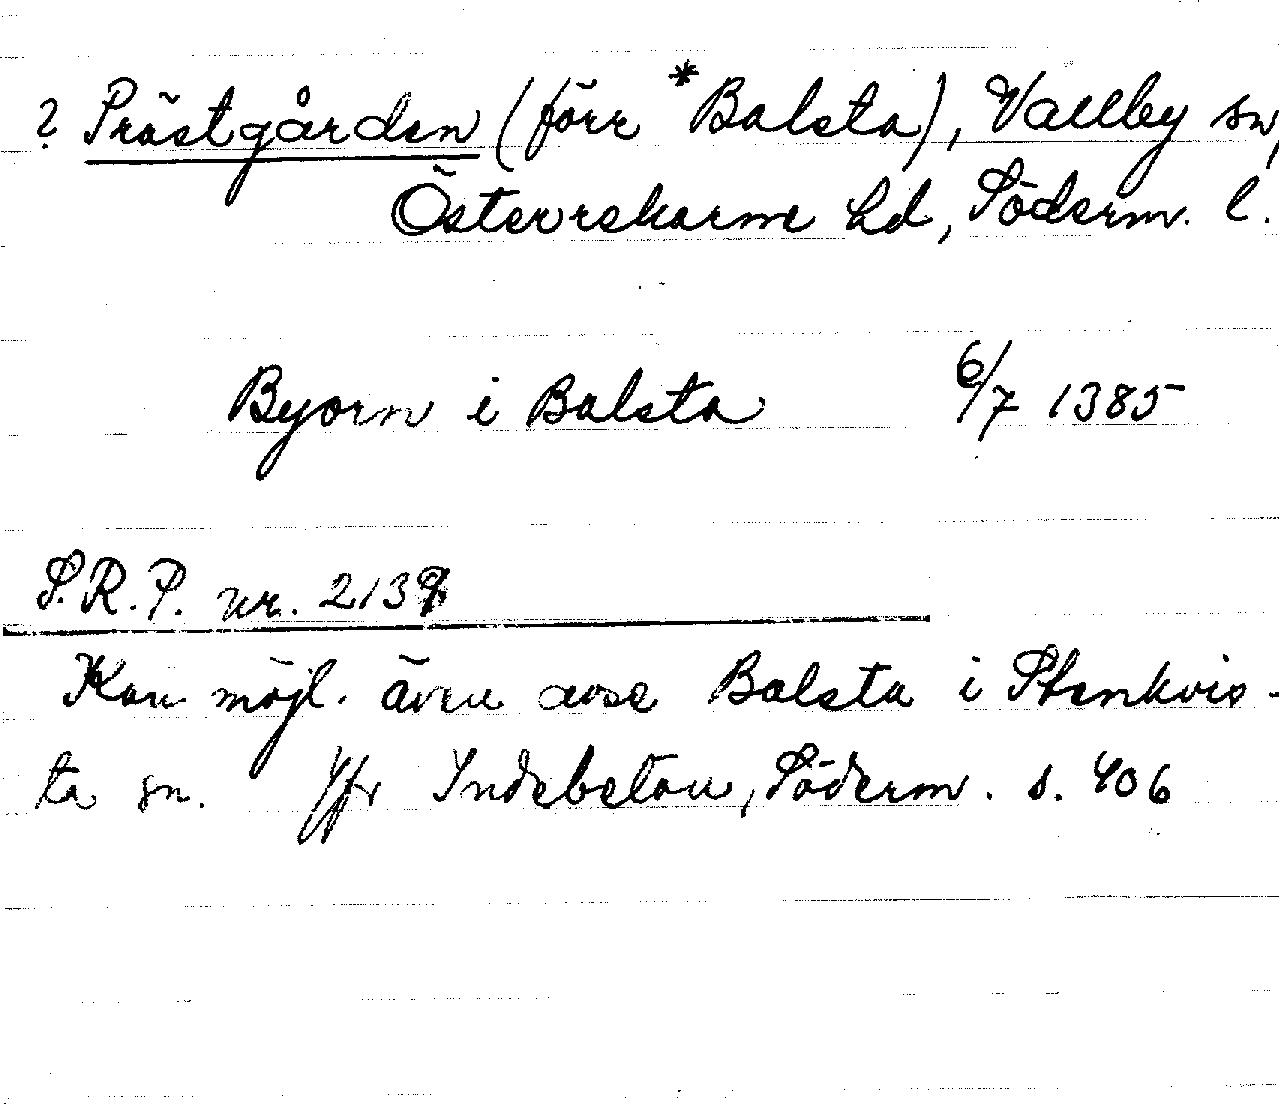 ? Prästgården (förr *Balsta), Vallby sn,
Österrekarne hd, Söderm. l.
Byorn i Balsta 6/7 1385
S.R.P. nr.
Kan möjl. även avse Balsta i Stenkvis-
ta sn. Jfr Indebetou, Söderm. s. 406